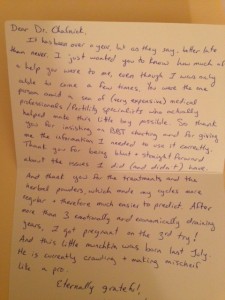 Dear Dr. Chalnick,
It has been over a year, but as they say, better late
than never. I just wanted you to know how much of
a help you were to me, even though I was only
able to come a few times. You were the one
person amid a sea of (very expensive) medical
professionals/fertility specialists who actually
helped make this little boy possible. So thank
you for insisting on BBT charting and for giving
me the information I needed to use it correctly.
Thank you for being blunt + straightforward
about the issues I did (and didn't) have.
And thank you for the treatments and the
herbal powders, which made my cycles more
regular + therefore much easier to predict. After
more than 3 emotionally and economically draining
years, I got pregnant on the 3rd try!
And this little munchkin was born last July.
He is currently crawling + making mischief
like a pro.
Eternally grateful,